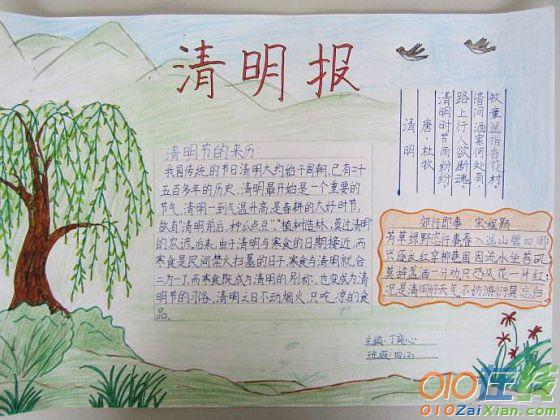 清明报
清明节的来历:
我国传统的节日清明大约始于周朝,已有二十
五百多年的历史,清明最开始是一个重要的
节气,清明一到气温升高,是春耕的大好时节,
故有"清明前后,种瓜点豆""植树造林,莫过清明
的农谚。后来,由于清明与寒食的日期接近,而
寒食是民间禁火扫墓的日子,寒食与清明就合
二为一了,而寒食既成为清明的别称,也变成为清明
节的习俗,清明之日不动烟火,只吃凉的食
品。
清明
唐·杜牧
清明时节雨纷纷
路上行人欲断魂
借问酒家何处有
牧童遥指杏花村
郊行即事 宋程颢
芳草绿野恣行事春入遥山碧四周
兴逐乱红穿柳巷困因流水坐苔矶
莫辞盏酒一分劝只恐风花一片红
况是清明好天气不妨游衍莫忘归
主编:丁奕心
班级:四(2)
010在线
010ZaiXian.com